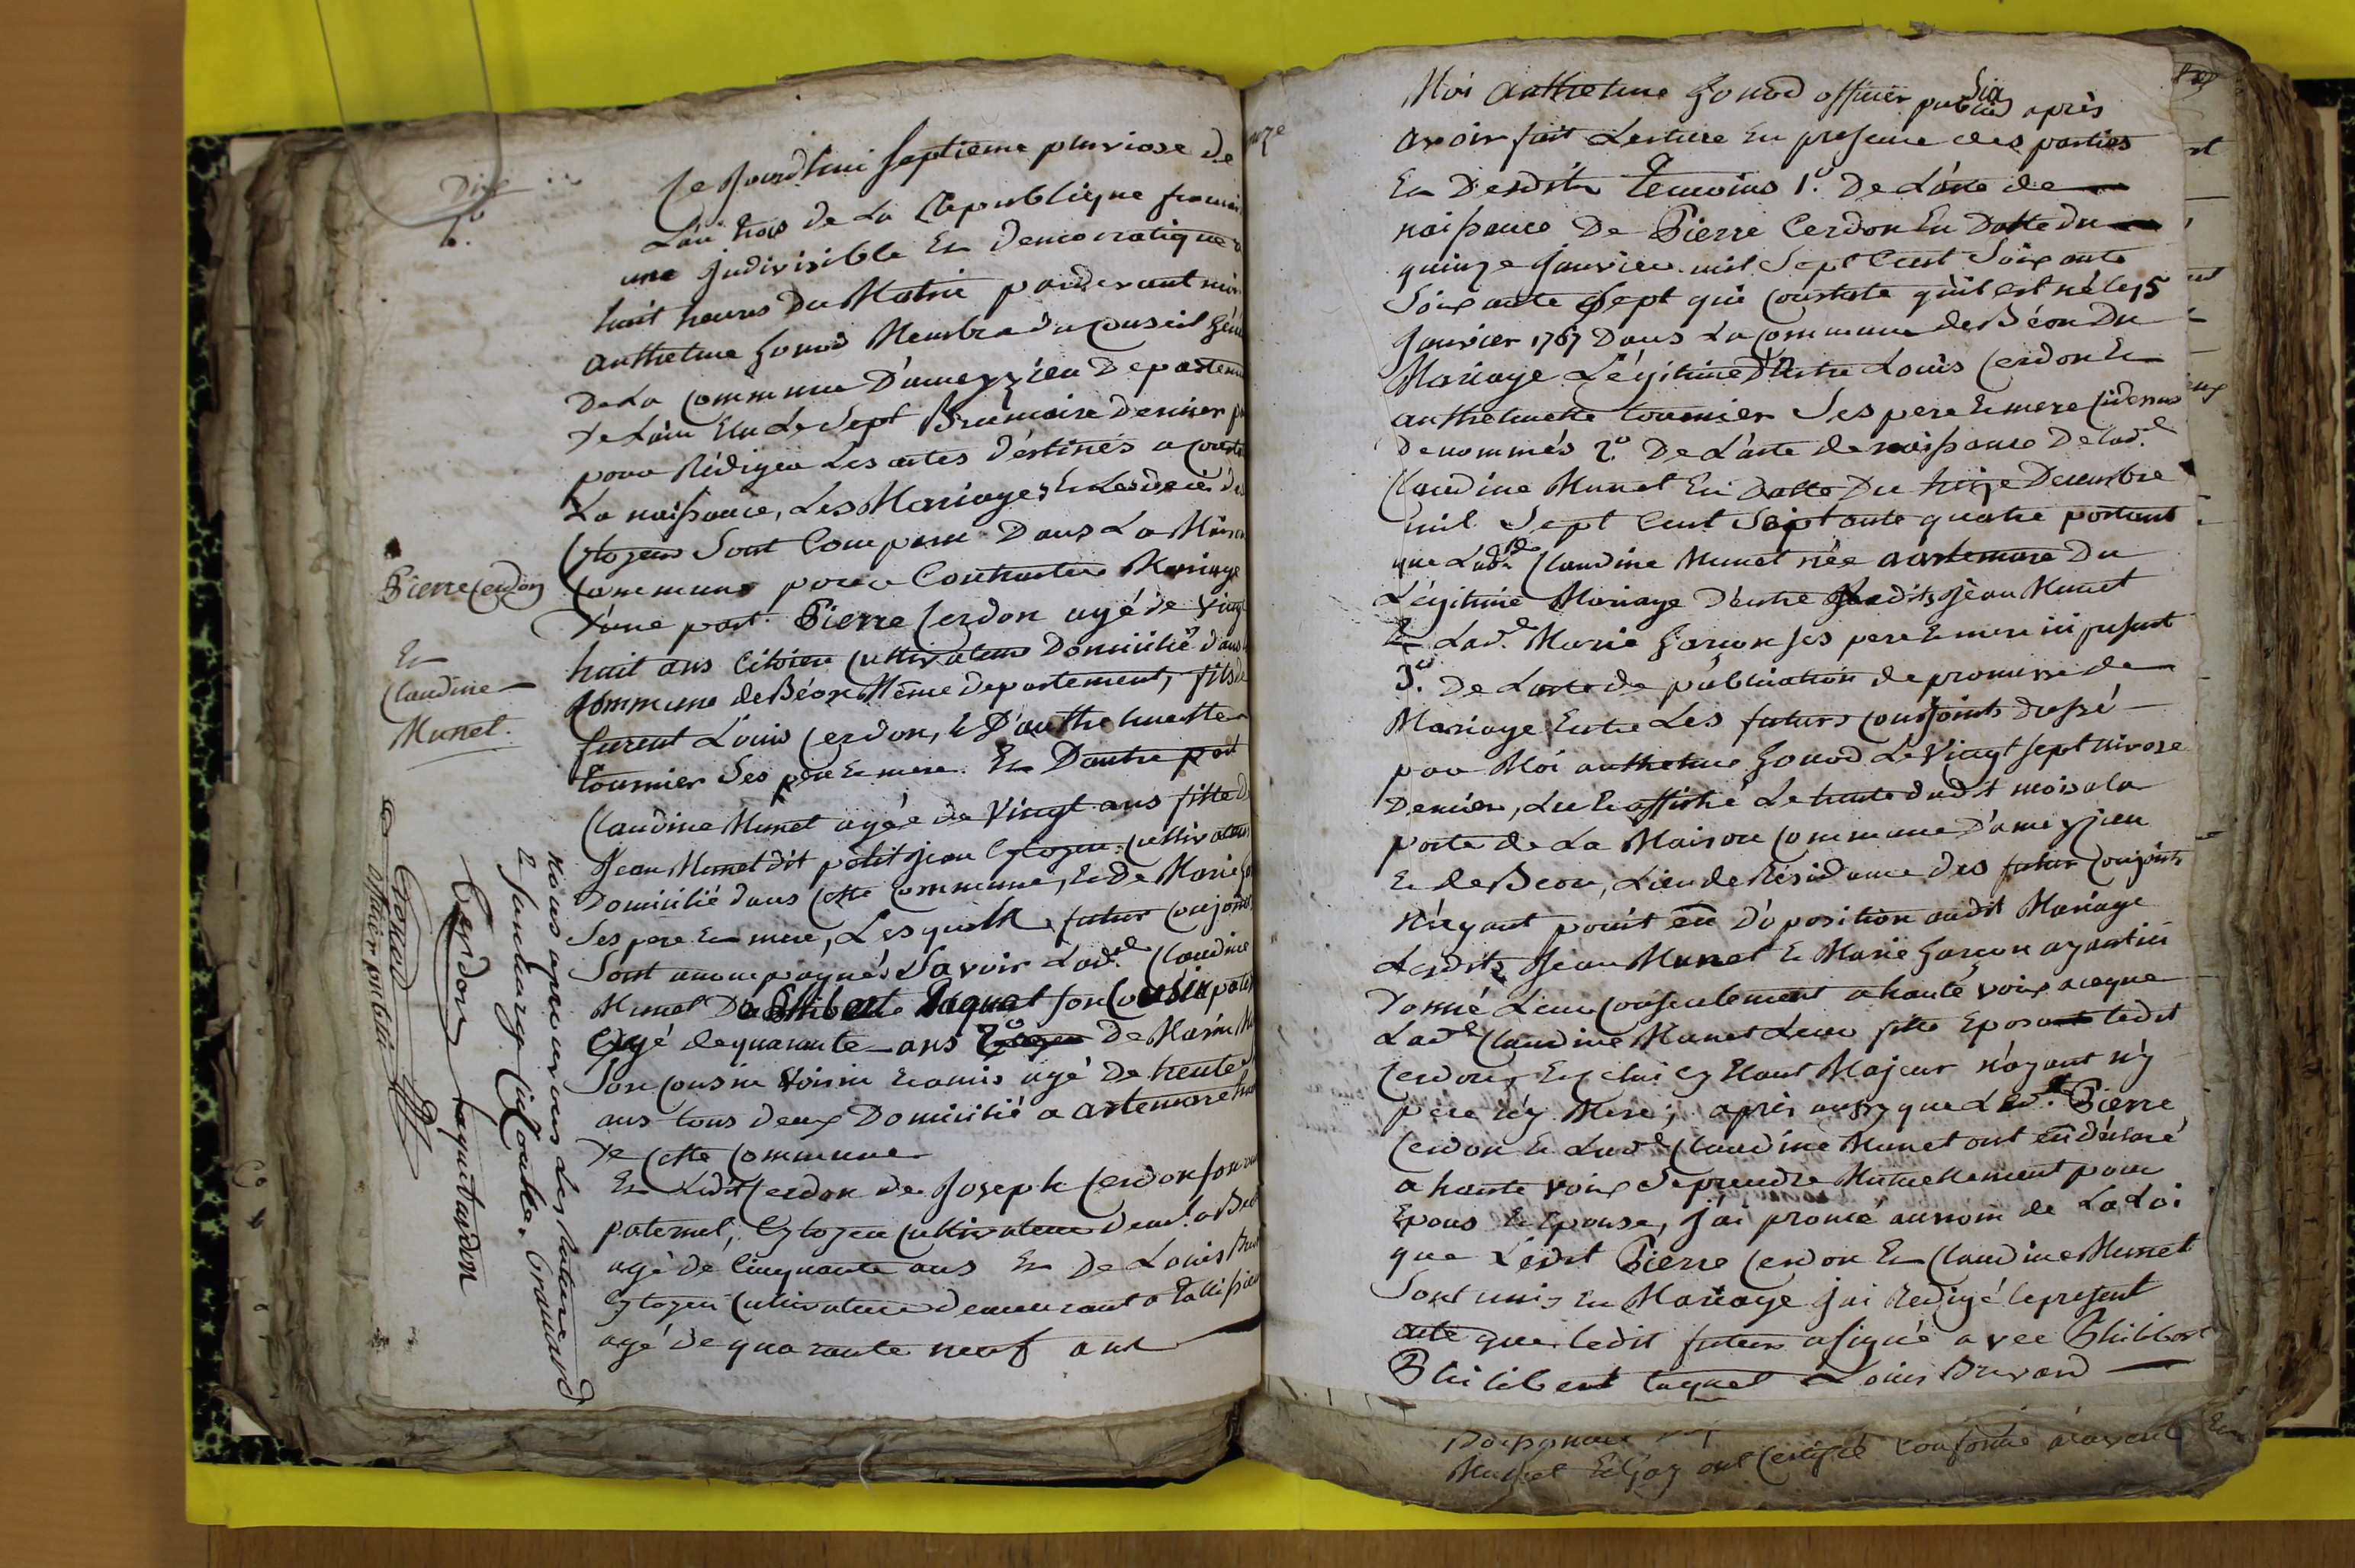 Dix
6.
Ce Jourdhui septieme pluviose de
L'an trois de la Republique francai
une Indivisible Et Democratique a
huit heures Du Matin pardevant moi
anthelme Gonod Membre du Conseil Géné
De La Commune D'ameyzieu Departem
De L'ain Elu Le Sept Brumaire dernier
pour Rédiger Les actes déstinés a const
La naissance, Les Mariages Et Les deces des
Cytoyens Sont Comparu Dans La Maison
Commune pour Contracter Mariage
D'une part Pierre Cerdon agé de Vingt
huit ans Citoien Cultivateur Domicilié dans
Commune de Béon Même Departement, fils de
furent Louis Cerdon, & D'anthelmette
tournier Ses pere & mere. Et Dautre part
Claudine Munet agée de Vingt ans fille de
Jean Munet dit petit jean Cytoyen Cultivateur
Domicilié dans Cette Commune, Et De Marie
Ses pere Et mere, Lesquels futur Conjoints
Sont accompagnés Savoir Lade Claudine
Munet De Philibert taquet son Cousin pate
Agé de quarante ans 2° De Marin
Son Cousin Voisin & amis agé De trente
ans tous deux Domicilié a artemare
De Cette Commune
Et Ledit Cerdon de Joseph Cerdon son
paternel, Cytoyen Cultivateur
agé de Cinquante ans Et De Louis
Cytoyen Cultivateur demeurant a talissieu
agé de quarante neuf ans
Pierre Cerdon
Et
Claudine
Munet.
Nous approuvons
& surcharge
Cerdon taquet
Gonod
officier public
Moi anthelme Gonod officier public après
avoir fait Lecture En presence des parties
Et Desdits temoins 1.° De L'acte de
naissance De Pierre Cerdon En Datte du
quinze Janvier mil Sept Cent Soixante
Soixante Sept qui Constate qu'il est né le 15
Janvier 1767 Dans La Commune de Béon Du
Mariage Légitime D'Entre Louis Cerdon Et
anthelmette tournier Ses pere & mere
Denommés 2.° De L'acte de naissance De Lade
Claudine Munet En Datte Du treize Decembre
mil Sept Cent Septante quatre portant
que Lade Claudine Munet née a artemare Du
Légitime Mariage D'entre Jean Munet
& Lade Marie Garcon ses pere & mere ici present
3.° De L'acte de publication de promesse de
Mariage Entre Les futurs Conjoints dressé
par Moi anthelme Gonod Le Vingt sept nivose
Dernier, Lu & affiché Le trente dudit mois a la
porte de La Maison Commune D'ameyzieu
Et de Beon, Lieu de Résidance des futur Conjoints
N'ayant point eu D'oposition audit Mariage
Lesdits Jean Munet & Marie Garcon ayant ici
Donné Leur Consentement a haute voix a ceque
Lade Claudine Munet Leur fille Eposat ledit
Cerdon, Et Celui Cy Etant Majeur N'ayant n'y
pere n'y Mere; après aussy que Ledt Pierre
Cerdon & Lade Claudine Munet ont eu déclaré
a haute voix Se prendre Mutuellement pour
Epous & Epouse, j'ai pronncé aunom de La Loi
que Ledit Pierre Cerdon Et Claudine Munet
Sont unis En Mariage j'ai Redigé le present
acte que ledit futur a signé avec Philibert
Philibert taquet Louis
Munet Et Goy ont Certifié Conforme